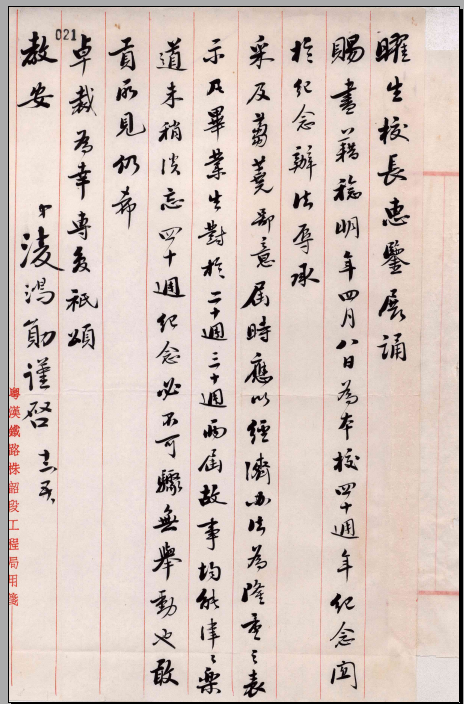 曜生校長惠鑒展誦
賜書藉稔明年四月八日為本校四十週年紀念関
於紀念辦法辱承
采及蒭蕘鄙意屆時應以經濟办法為隆重之表
示及畢業生對於二十週三十週兩屆故事均能津々樂
道未稍淡忘四十週紀念必不可驟無舉動也敢
貢所見仍希
卓裁為幸專复祗頌
教安
弟凌鴻勛謹啓
粵漢鐵路株韶段工程局用箋
021